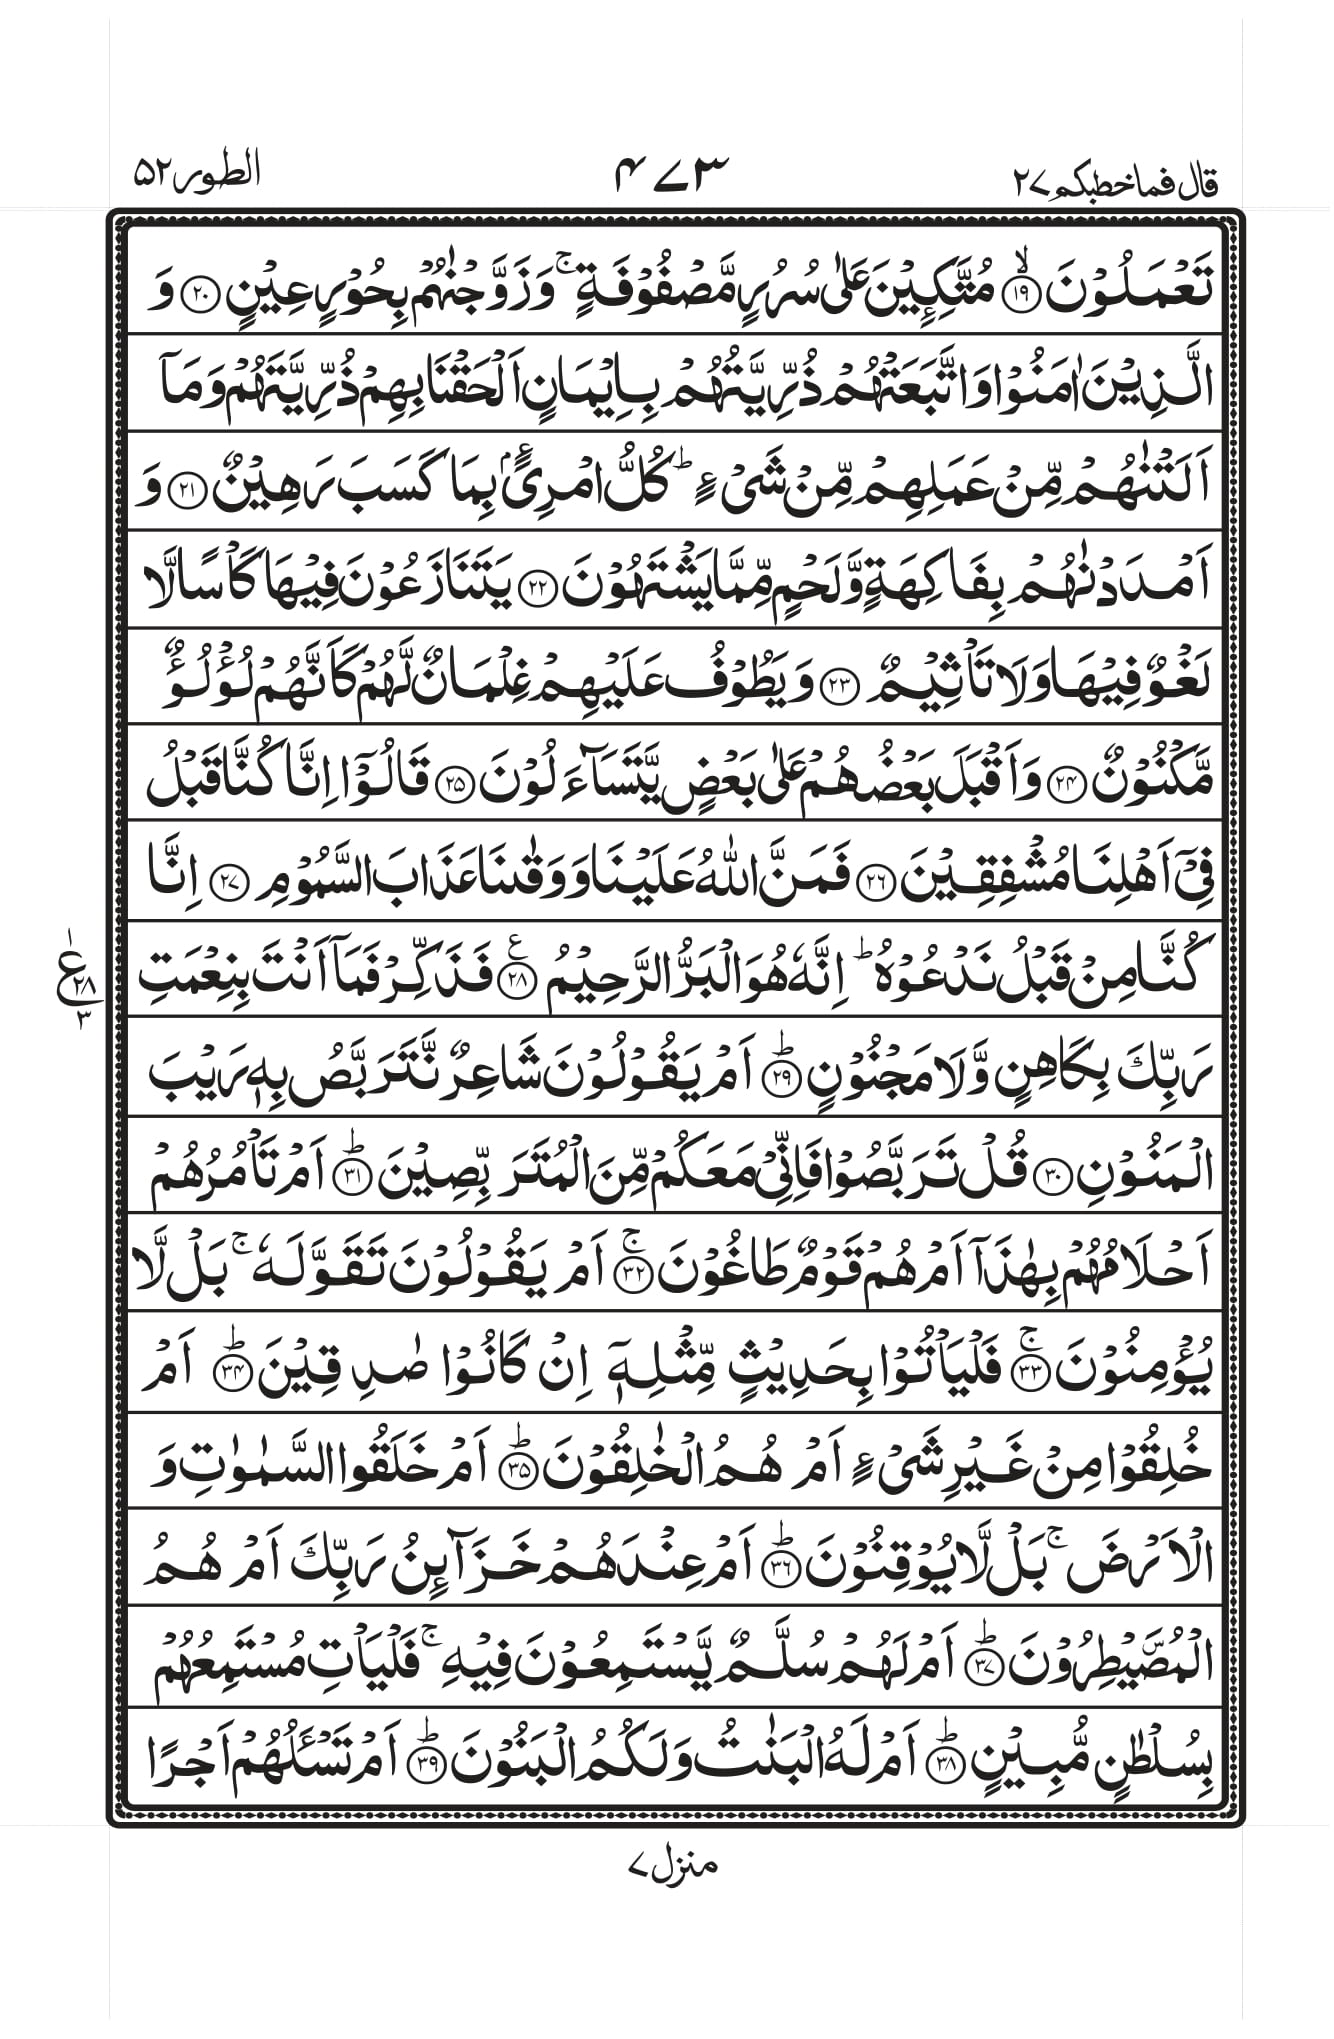 قال فما خطبکم ۲۷
۴۷۳
الطور ۵۲
تَعْمَلُوْنَ ۙ﴿۱۹﴾ مُتَّكِـِٕيْنَ عَلٰى سُرُرٍ مَّصْفُوْفَةٍ ۚ وَزَوَّجْنٰهُمْ بِحُوْرٍ عِيْنٍ ﴿۲۰﴾ وَ
الَّذِيْنَ اٰمَنُوْا وَاتَّبَعَتْهُمْ ذُرِّيَّتُهُمْ بِاِيْمَانٍ اَلْحَقْنَا بِهِمْ ذُرِّيَّتَهُمْ وَمَآ
اَلَتْنٰهُمْ مِّنْ عَمَلِهِمْ مِّنْ شَىْءٍ ؕ كُلُّ امْرِیءٍۭ بِمَا كَسَبَ رَهِيْنٌ ﴿۲۱﴾ وَ
اَمْدَدْنٰهُمْ بِفَاكِهَةٍ وَّلَحْمٍ مِّمَّا يَشْتَهُوْنَ ﴿۲۲﴾ يَتَنَازَعُوْنَ فِيْهَا كَاْسًا لَّا
لَغْوٌ فِيْهَا وَلَا تَاْثِيْمٌ ﴿۲۳﴾ وَيَطُوْفُ عَلَيْهِمْ غِلْمَانٌ لَّهُمْ كَاَنَّهُمْ لُؤْلُؤٌ
مَّكْنُوْنٌ ﴿۲۴﴾ وَاَقْبَلَ بَعْضُهُمْ عَلٰى بَعْضٍ يَّتَسَآءَلُوْنَ ﴿۲۵﴾ قَالُوْٓا اِنَّا كُنَّا قَبْلُ
فِىْٓ اَهْلِنَا مُشْفِقِيْنَ ﴿۲۶﴾ فَمَنَّ اللّٰهُ عَلَيْنَا وَوَقٰىنَا عَذَابَ السَّمُوْمِ ﴿۲۷﴾ اِنَّا
كُنَّا مِنْ قَبْلُ نَدْعُوْهُ ؕ اِنَّهٗ هُوَ الْبَرُّ الرَّحِيْمُ ﴿۲۸﴾ ع فَذَكِّرْ فَمَآ اَنْتَ بِنِعْمَتِ
۱ ع ۲۸ ۳
رَبِّكَ بِكَاهِنٍ وَّلَا مَجْنُوْنٍ ؕ﴿۲۹﴾ اَمْ يَقُوْلُوْنَ شَاعِرٌ نَّتَرَبَّصُ بِهٖ رَيْبَ
الْمَنُوْنِ ﴿۳۰﴾ قُلْ تَرَبَّصُوْا فَاِنِّىْ مَعَكُمْ مِّنَ الْمُتَرَبِّصِيْنَ ؕ﴿۳۱﴾ اَمْ تَاْمُرُهُمْ
اَحْلَامُهُمْ بِهٰذَآ اَمْ هُمْ قَوْمٌ طَاغُوْنَ ۚ﴿۳۲﴾ اَمْ يَقُوْلُوْنَ تَقَوَّلَهٗ ۚ بَلْ لَّا
يُؤْمِنُوْنَ ۚ﴿۳۳﴾ فَلْيَاْتُوْا بِحَدِيْثٍ مِّثْلِهٖٓ اِنْ كَانُوْا صٰدِقِيْنَ ؕ﴿۳۴﴾ اَمْ
خُلِقُوْا مِنْ غَيْرِ شَىْءٍ اَمْ هُمُ الْخٰلِقُوْنَ ؕ﴿۳۵﴾ اَمْ خَلَقُوا السَّمٰوٰتِ وَ
الْاَرْضَ ۚ بَلْ لَّا يُوْقِنُوْنَ ؕ﴿۳۶﴾ اَمْ عِنْدَهُمْ خَزَآئِنُ رَبِّكَ اَمْ هُمُ
الْمُصَۜيْطِرُوْنَ ؕ﴿۳۷﴾ اَمْ لَهُمْ سُلَّمٌ يَّسْتَمِعُوْنَ فِيْهِ ۚ فَلْيَاْتِ مُسْتَمِعُهُمْ
بِسُلْطٰنٍ مُّبِيْنٍ ؕ﴿۳۸﴾ اَمْ لَهُ الْبَنٰتُ وَلَكُمُ الْبَنُوْنَ ؕ﴿۳۹﴾ اَمْ تَسْـَٔلُهُمْ اَجْرًا
منزل ۷